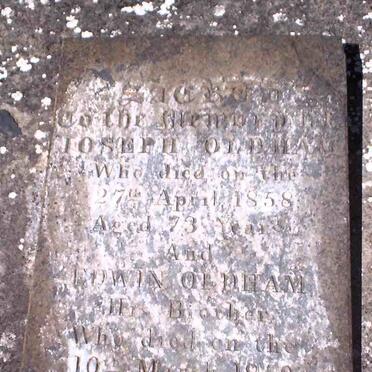 SACRED
To the Memory of
JOSEPH OLDHAM
Who died on the
27th April 1858
Aged 73 Years
And
EDWIN OLDHAM
His Brother
Who died on the
10